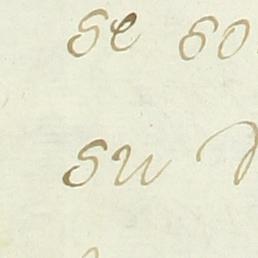 se so
su